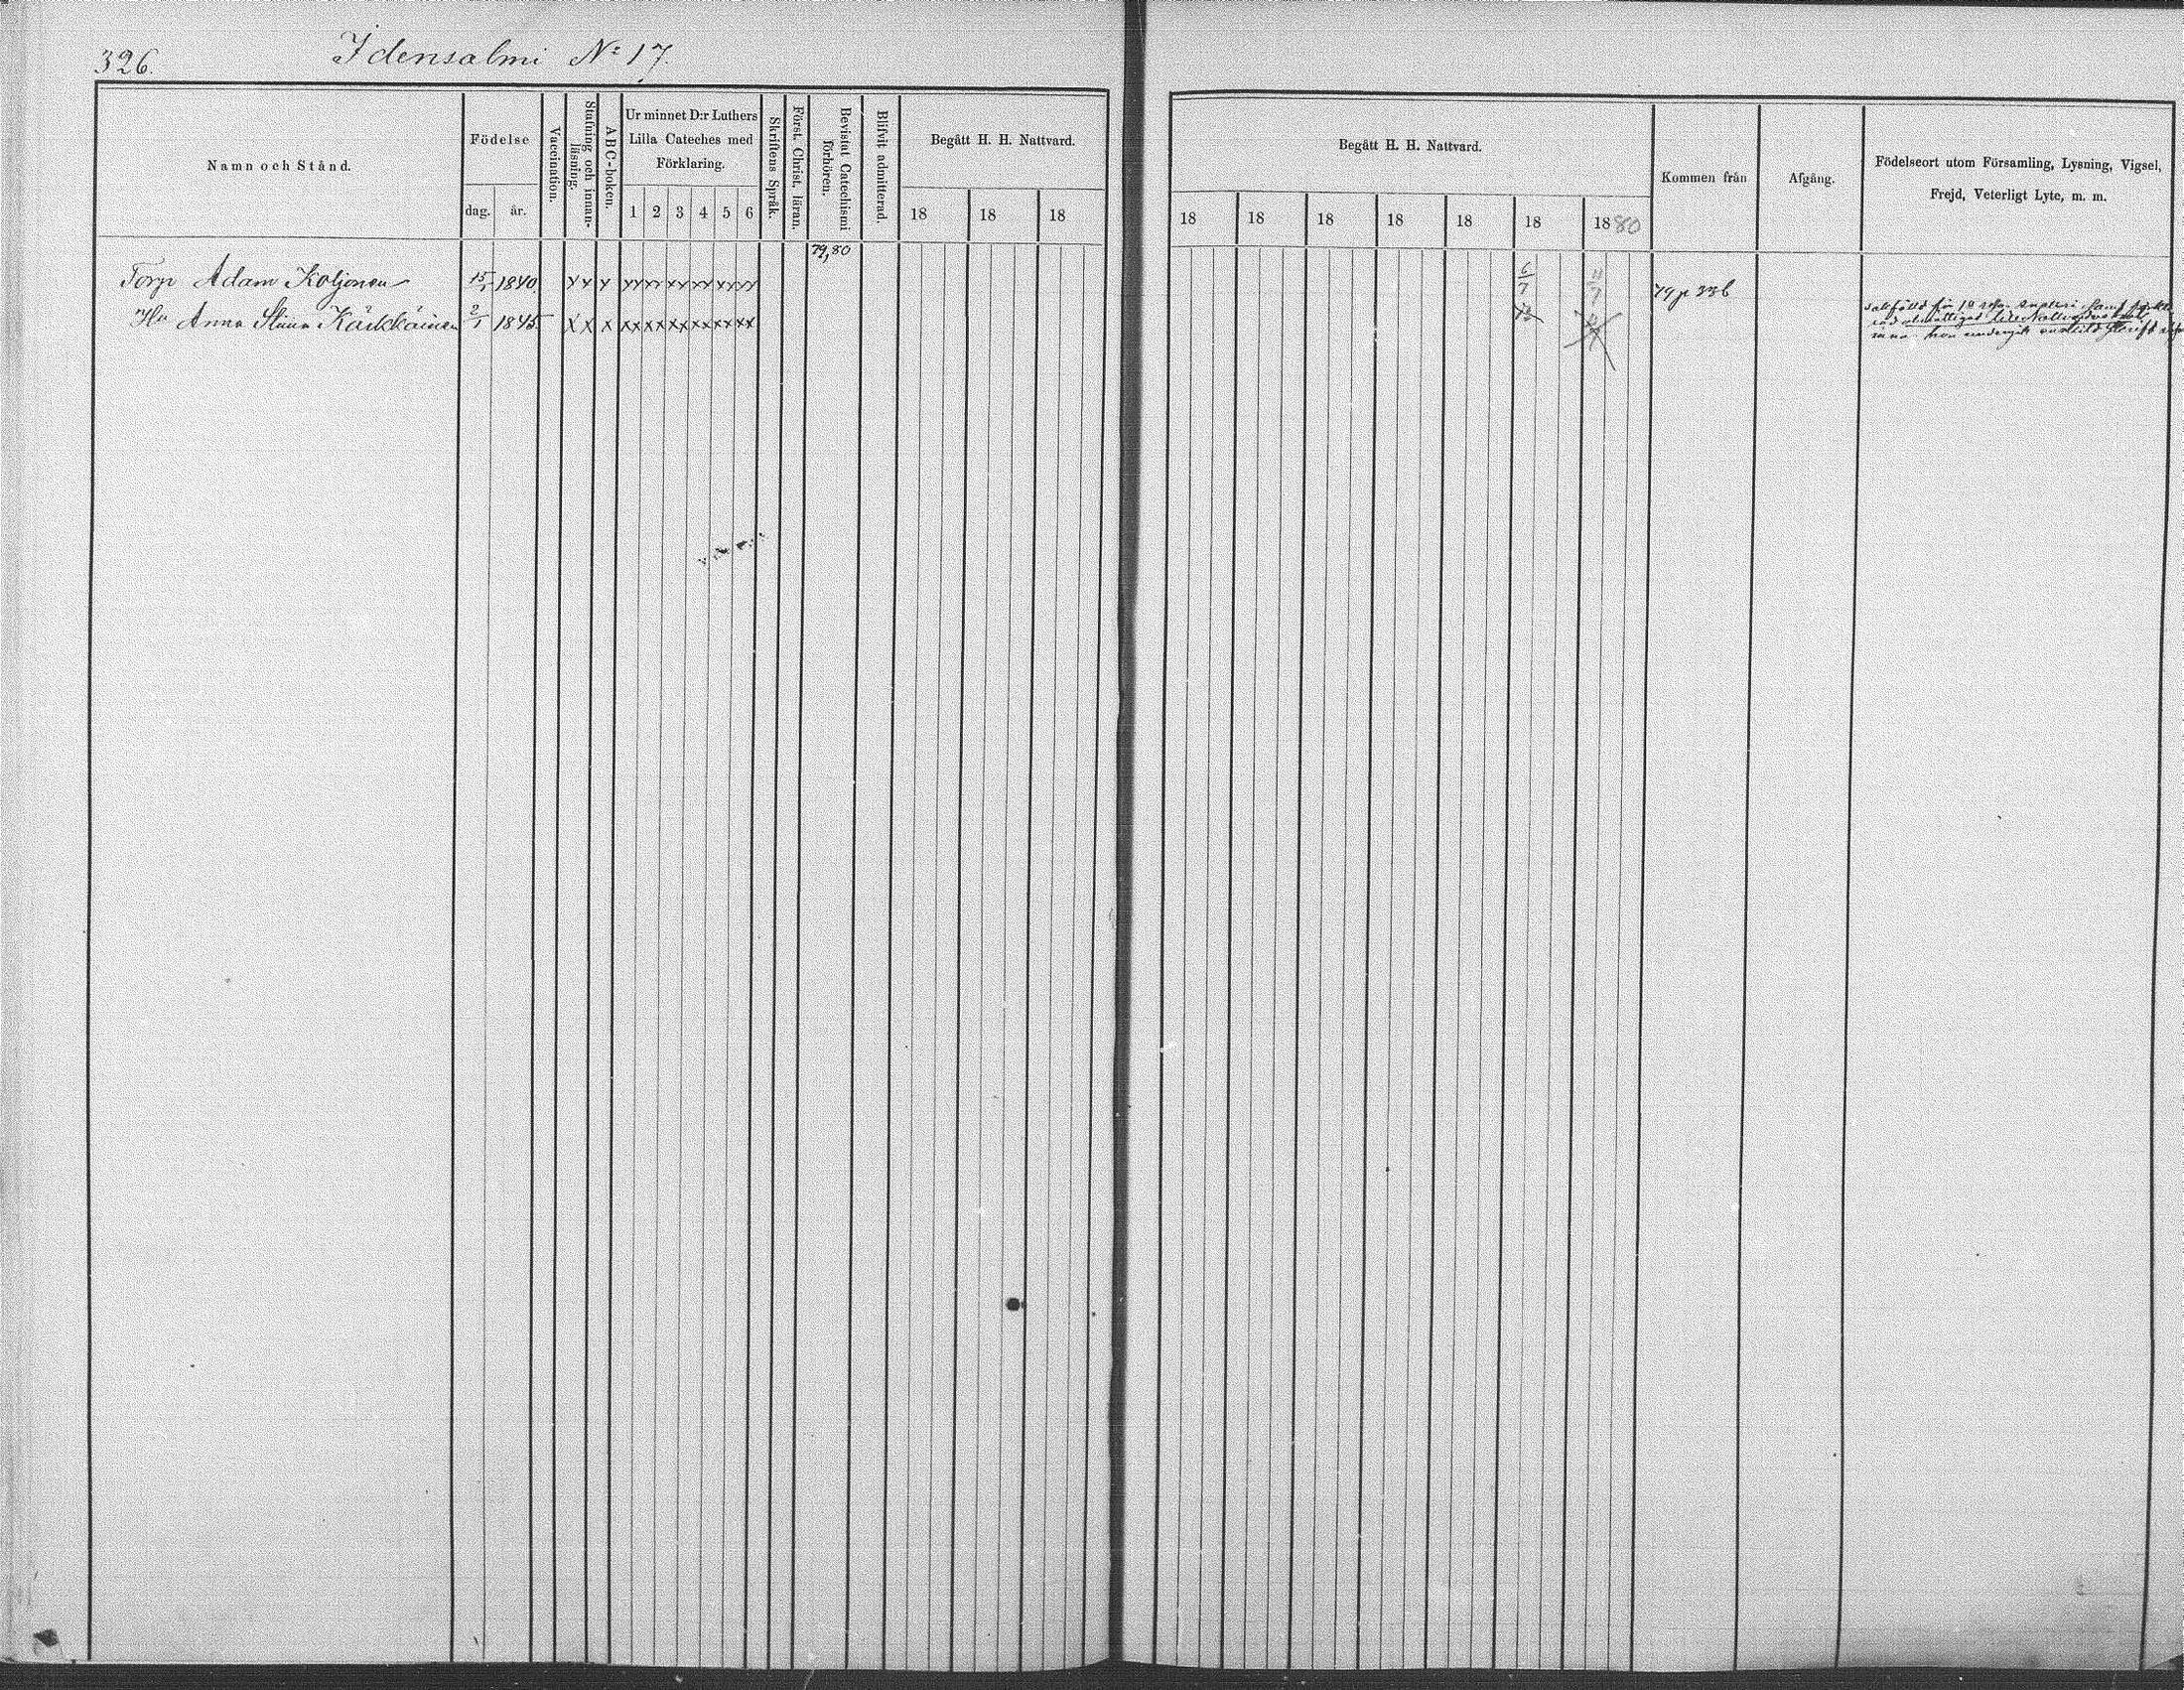 326.
Idensalmi No 17.
Namn och Stånd.
Födelse
dag.
år.
Vaccination.
Stafning och innan-läsning.
ABC-boken.
Ur minnet D:r Luthers
Lilla Cateches med
Förklaring.
1 2 3 4 5 6
Skriftens Språk.
Först. Christ. läran.
Bevistat Catechismi
förhören.
Blifvit admitterad.
Begått H. H. Nattvard.
18 18 18
Begått H. H. Nattvard.
18 18 18 18 18 18 1880
Kommen från
Afgång.
Födelseort utom Församling, Lysning, Vigsel,
Frejd, Veterligt Lyte, m. m.
79,80
Torp Adam Koljonen 15/1 1840 x x x xx xx xx xx xx xx 6/7 11/7 79 p 336
Hu Anna Stiina Kärkkäinen 2/1 1845 x x x xx xx xx xx xx xx
Sakfälld för